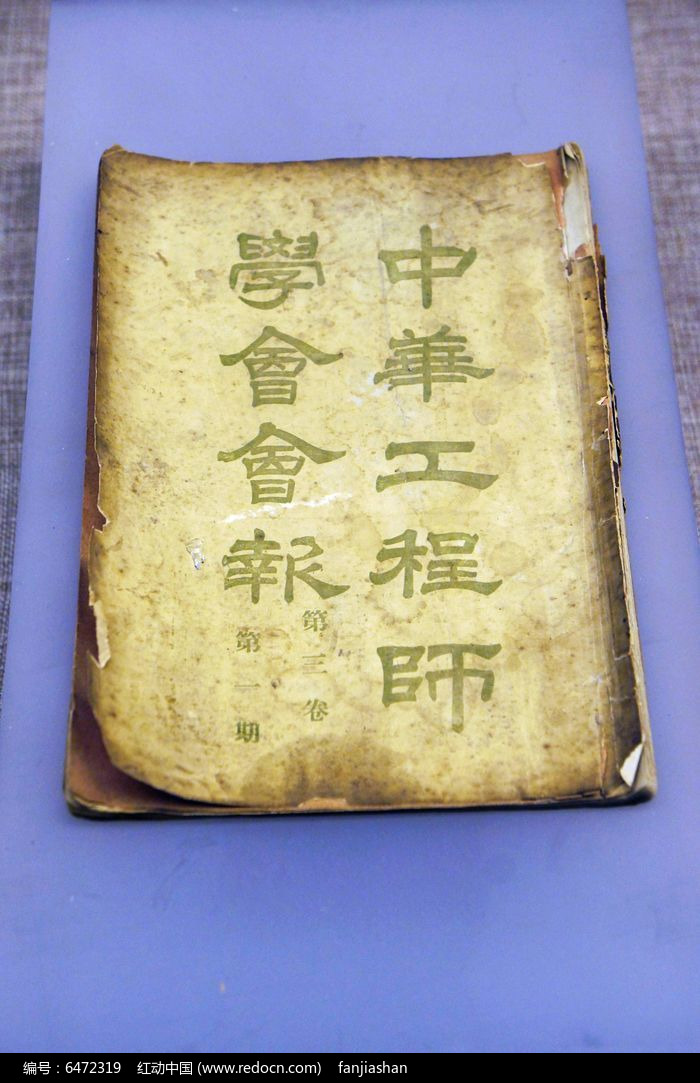 中華工程師
學會會報
第三卷
第一期
编号：6472319 红动中国 (www.redocn.com) fanjiashan